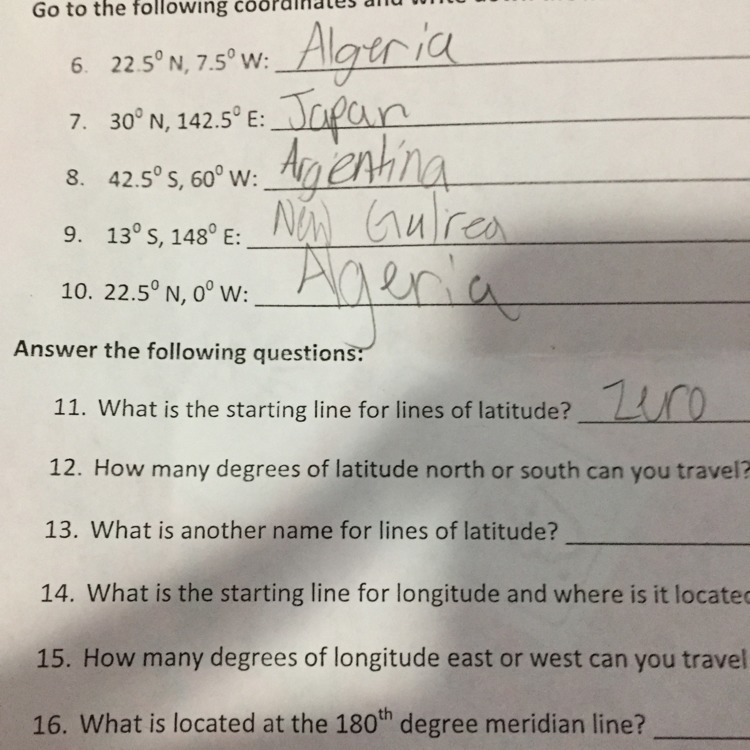 Go to the following coordinates and write down the
6. 22.5⁰ N, 7.5⁰ W: Algeria
7. 30⁰ N, 142.5⁰ E: Japan
8. 42.5⁰ S, 60⁰ W: Argentina
9. 13⁰ S, 148⁰ E: New Guirea
10. 22.5⁰ N, 0⁰ W: Algeria
Answer the following questions:
11. What is the starting line for lines of latitude? Zero
12. How many degrees of latitude north or south can you travel?
13. What is another name for lines of latitude?
14. What is the starting line for longitude and where is it located
15. How many degrees of longitude east or west can you travel
16. What is located at the 180th degree meridian line?